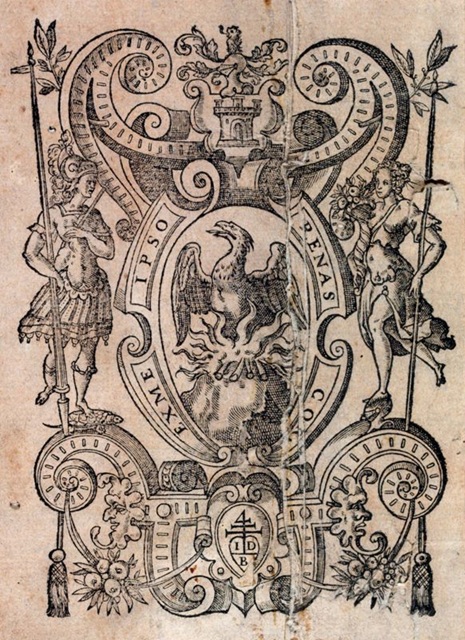 EXME
IPSO
RENAS
CO
4
I D
B